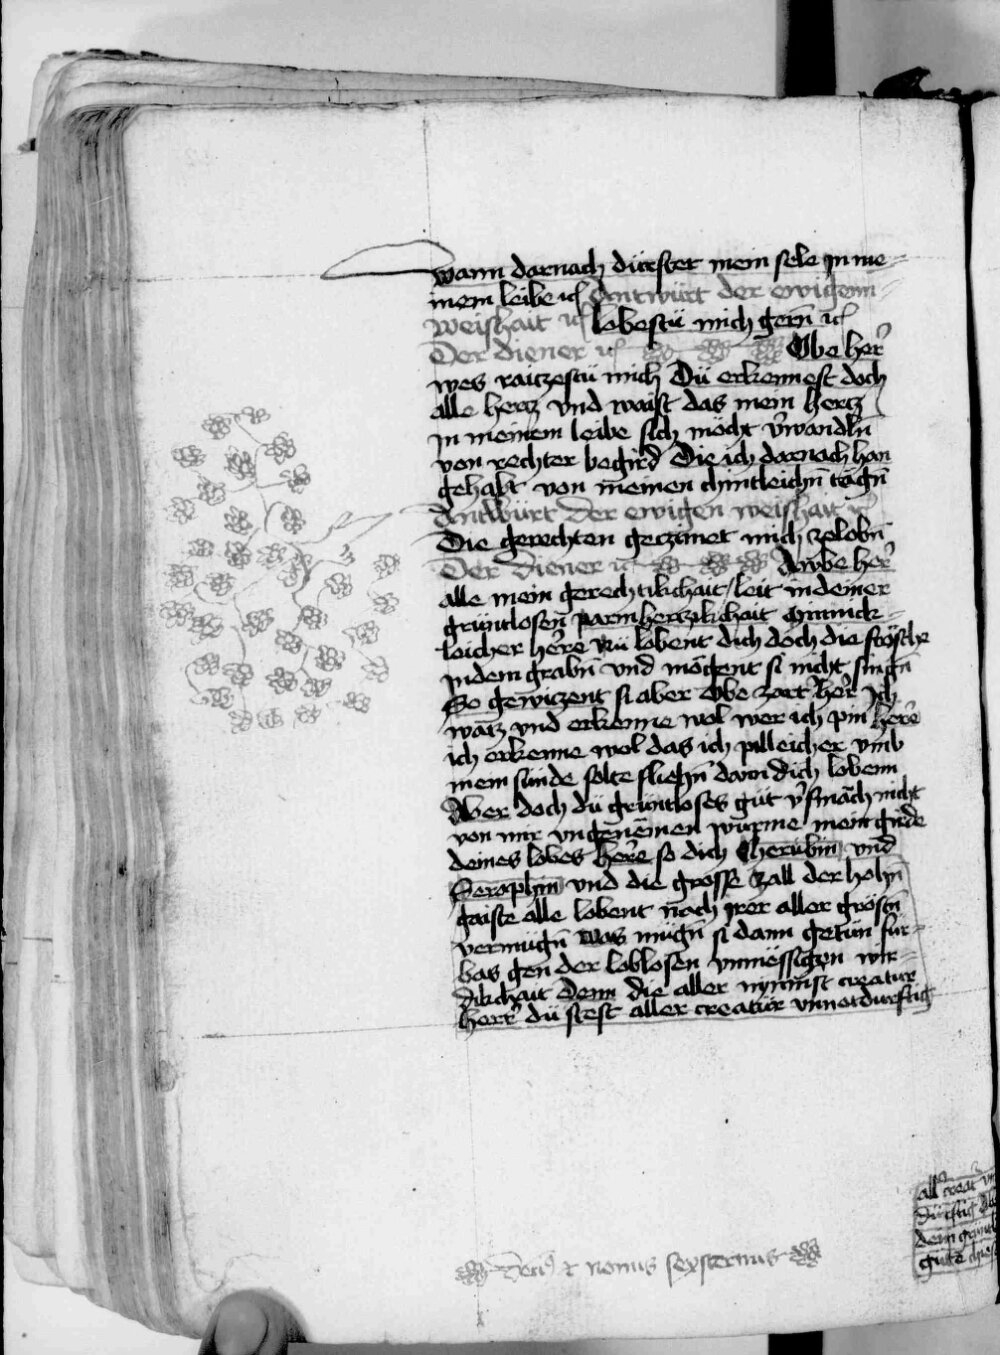 wann darnach dürstet mein sele in me-
mem leibe ꝛc Antwürt der ewigenn
weishait ꝛc lobestü mich gern̄ ꝛc
Der diener ꝛc Obe her̄
wes raitzestü mich Dü erkennest doch
alle hertz vnd waist das mein hertz
in meinem leibe sich möcht v̄wandln̄
von rechter begird Die ich darnach han
gehabt von meinen chintleichn̄ tagn̄
Antwürt der ewigen weishait ꝛc
Die gerechten getzimet mich zelobn̄
Der diener ꝛc Awbe her̄
alle mein gerechtikchait / leit in deiner
grüntlosen̄ parmhertzikchait
loicher her̄e Nü lobent dich doch die frösche
in dem grabn̄ vnd mögent si nicht singn̄
So gewitzent si aber Obe zart her̄ Ich
waiz vnd erkenne wol wer ich pin her̄e
ich erkenne wol das ich pilleicher vmb
mein sünde solte fliehn̄ dann dich lobenn
Aber doch dü grüntloses güt v̄smäch nicht
von mir vngenēmen würme mein girde
deines lobes her̄e so dich Cherubin vnd
Seraphin vnd die grosse zall der hohn̄
gaiste alle lobent nach irer aller grösn̄
vermügn̄ was mügn̄ si dann getün für-
bas gen der loblosen vnmëssigen wir-
dikchait Denn die aller mynnist creatur
Herr̄ dü stest aller creatür vnnotdurftig
all creat vn
dürftig
dein grünt
gute
Deci⁹ ⁊ nonus sexsternus